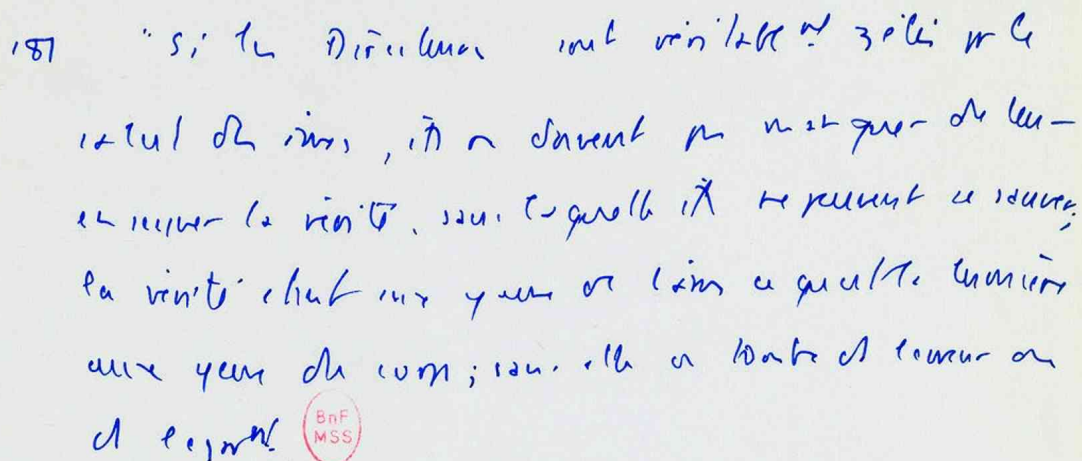 187 "Si les Directeurs sont véritablemt zélés pr le
salut des âmes, ils ne doivent pas manquer de leur
enseigner la vérité, sans laquelle ils ne peuvent se sauver;
la vérité étant aux yeux de l'âme ce qu'est la lumière
aux yeux du corps; sans elle on tombe et
et
BnF
MSS